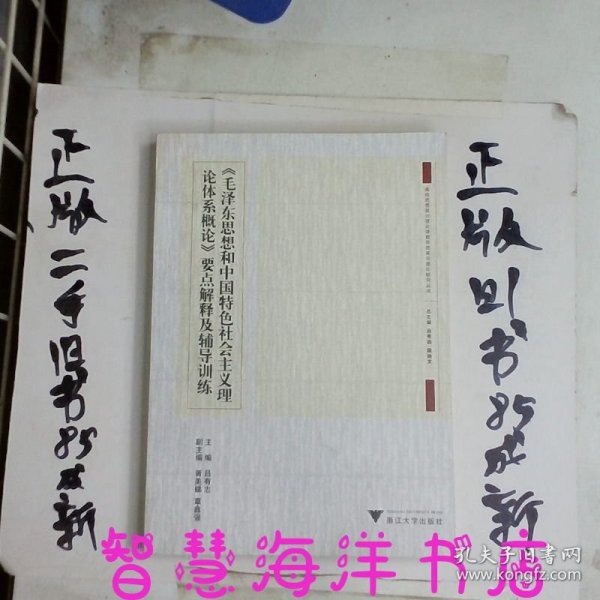 正版二手旧书85成新
《毛泽东思想和中国特色社会主义理
论体系概论》要点解释及辅导训练
主编 吕有志
副主编
浙江大学出版社
正版旧书85成新
智慧海洋书店
孔夫子旧书网
www.kongfz.com